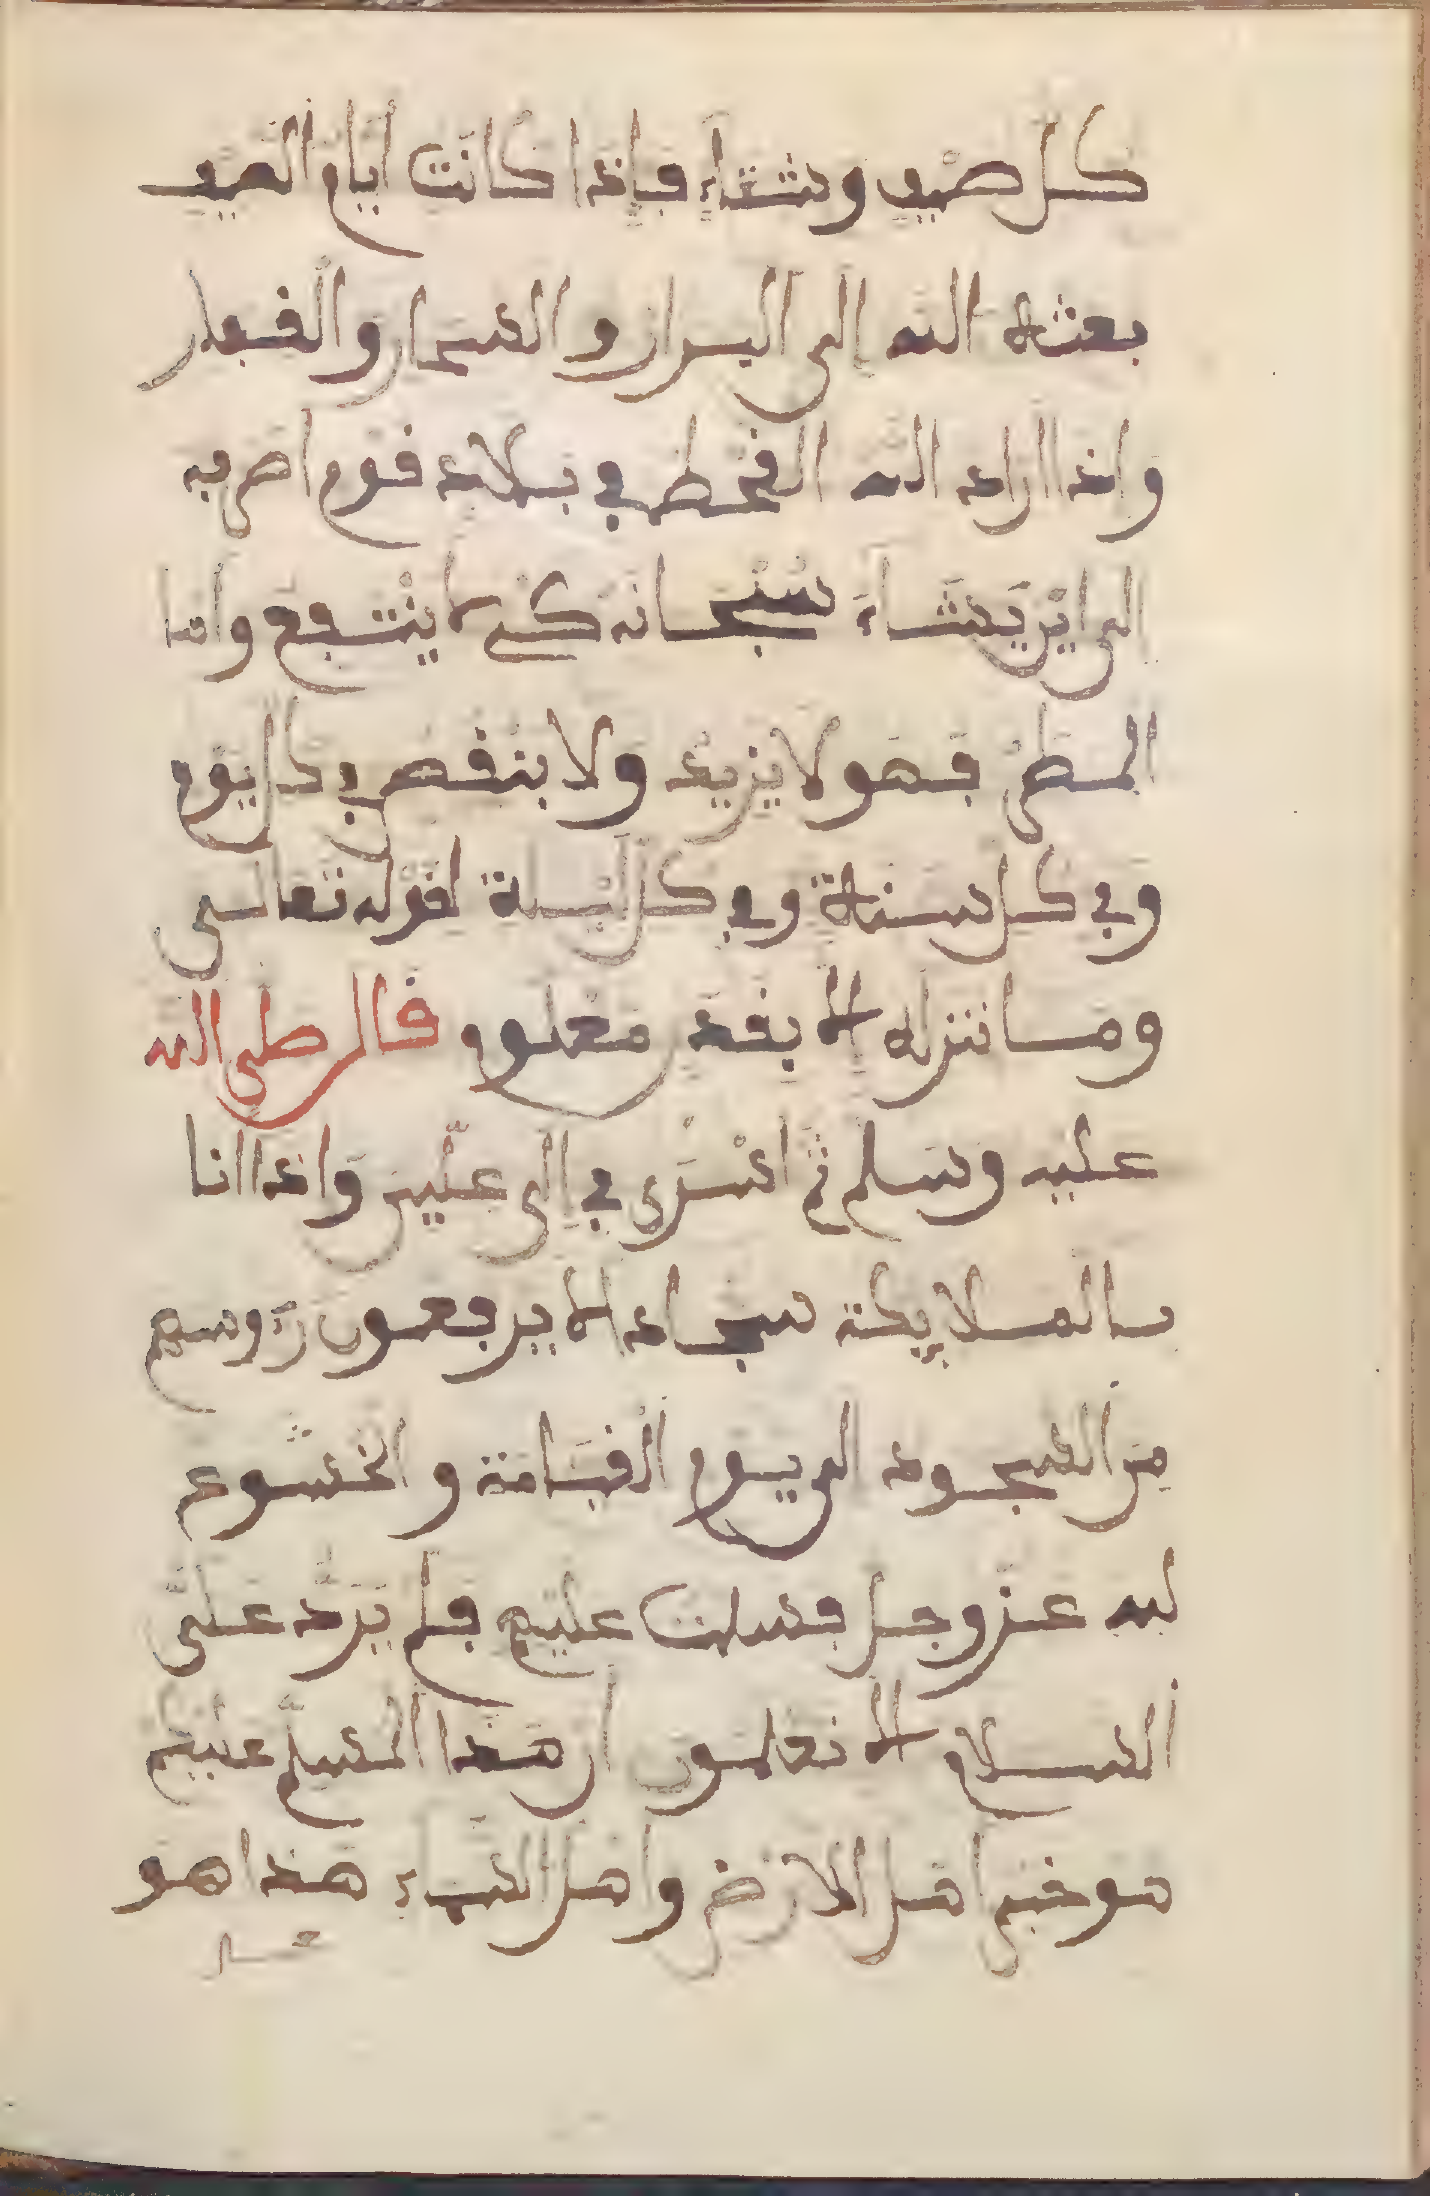 كل صيف وشتاء فإذا كانت أيام الصيف
بعثه الله إلى البرار والقبحار والقفار
واذا اراد الله القحط في بلاد قوم امر به
الى اين يشاء سبحانه كي لا ينتفع واما
المطر فهو لا يزيد ولا ينقص في كل يوم
وفي كل سنة وفي كل ليلة لقوله تعالى
وما ننزله الا بقدر معلوم قال صلى الله
عليه وسلم ثم اسرى بي إلى عليين واذا انا
بالملايكة سجدا لا يرفعون رءوسهم
من السجود الى يوم القيامة والخشوع
لله عز وجل فسلمت عليهم فلم يرد علي
السلام الا تعلمون ان هذا المسلم عليكم
هو خير اهل الارض واهل السماء هذا هو